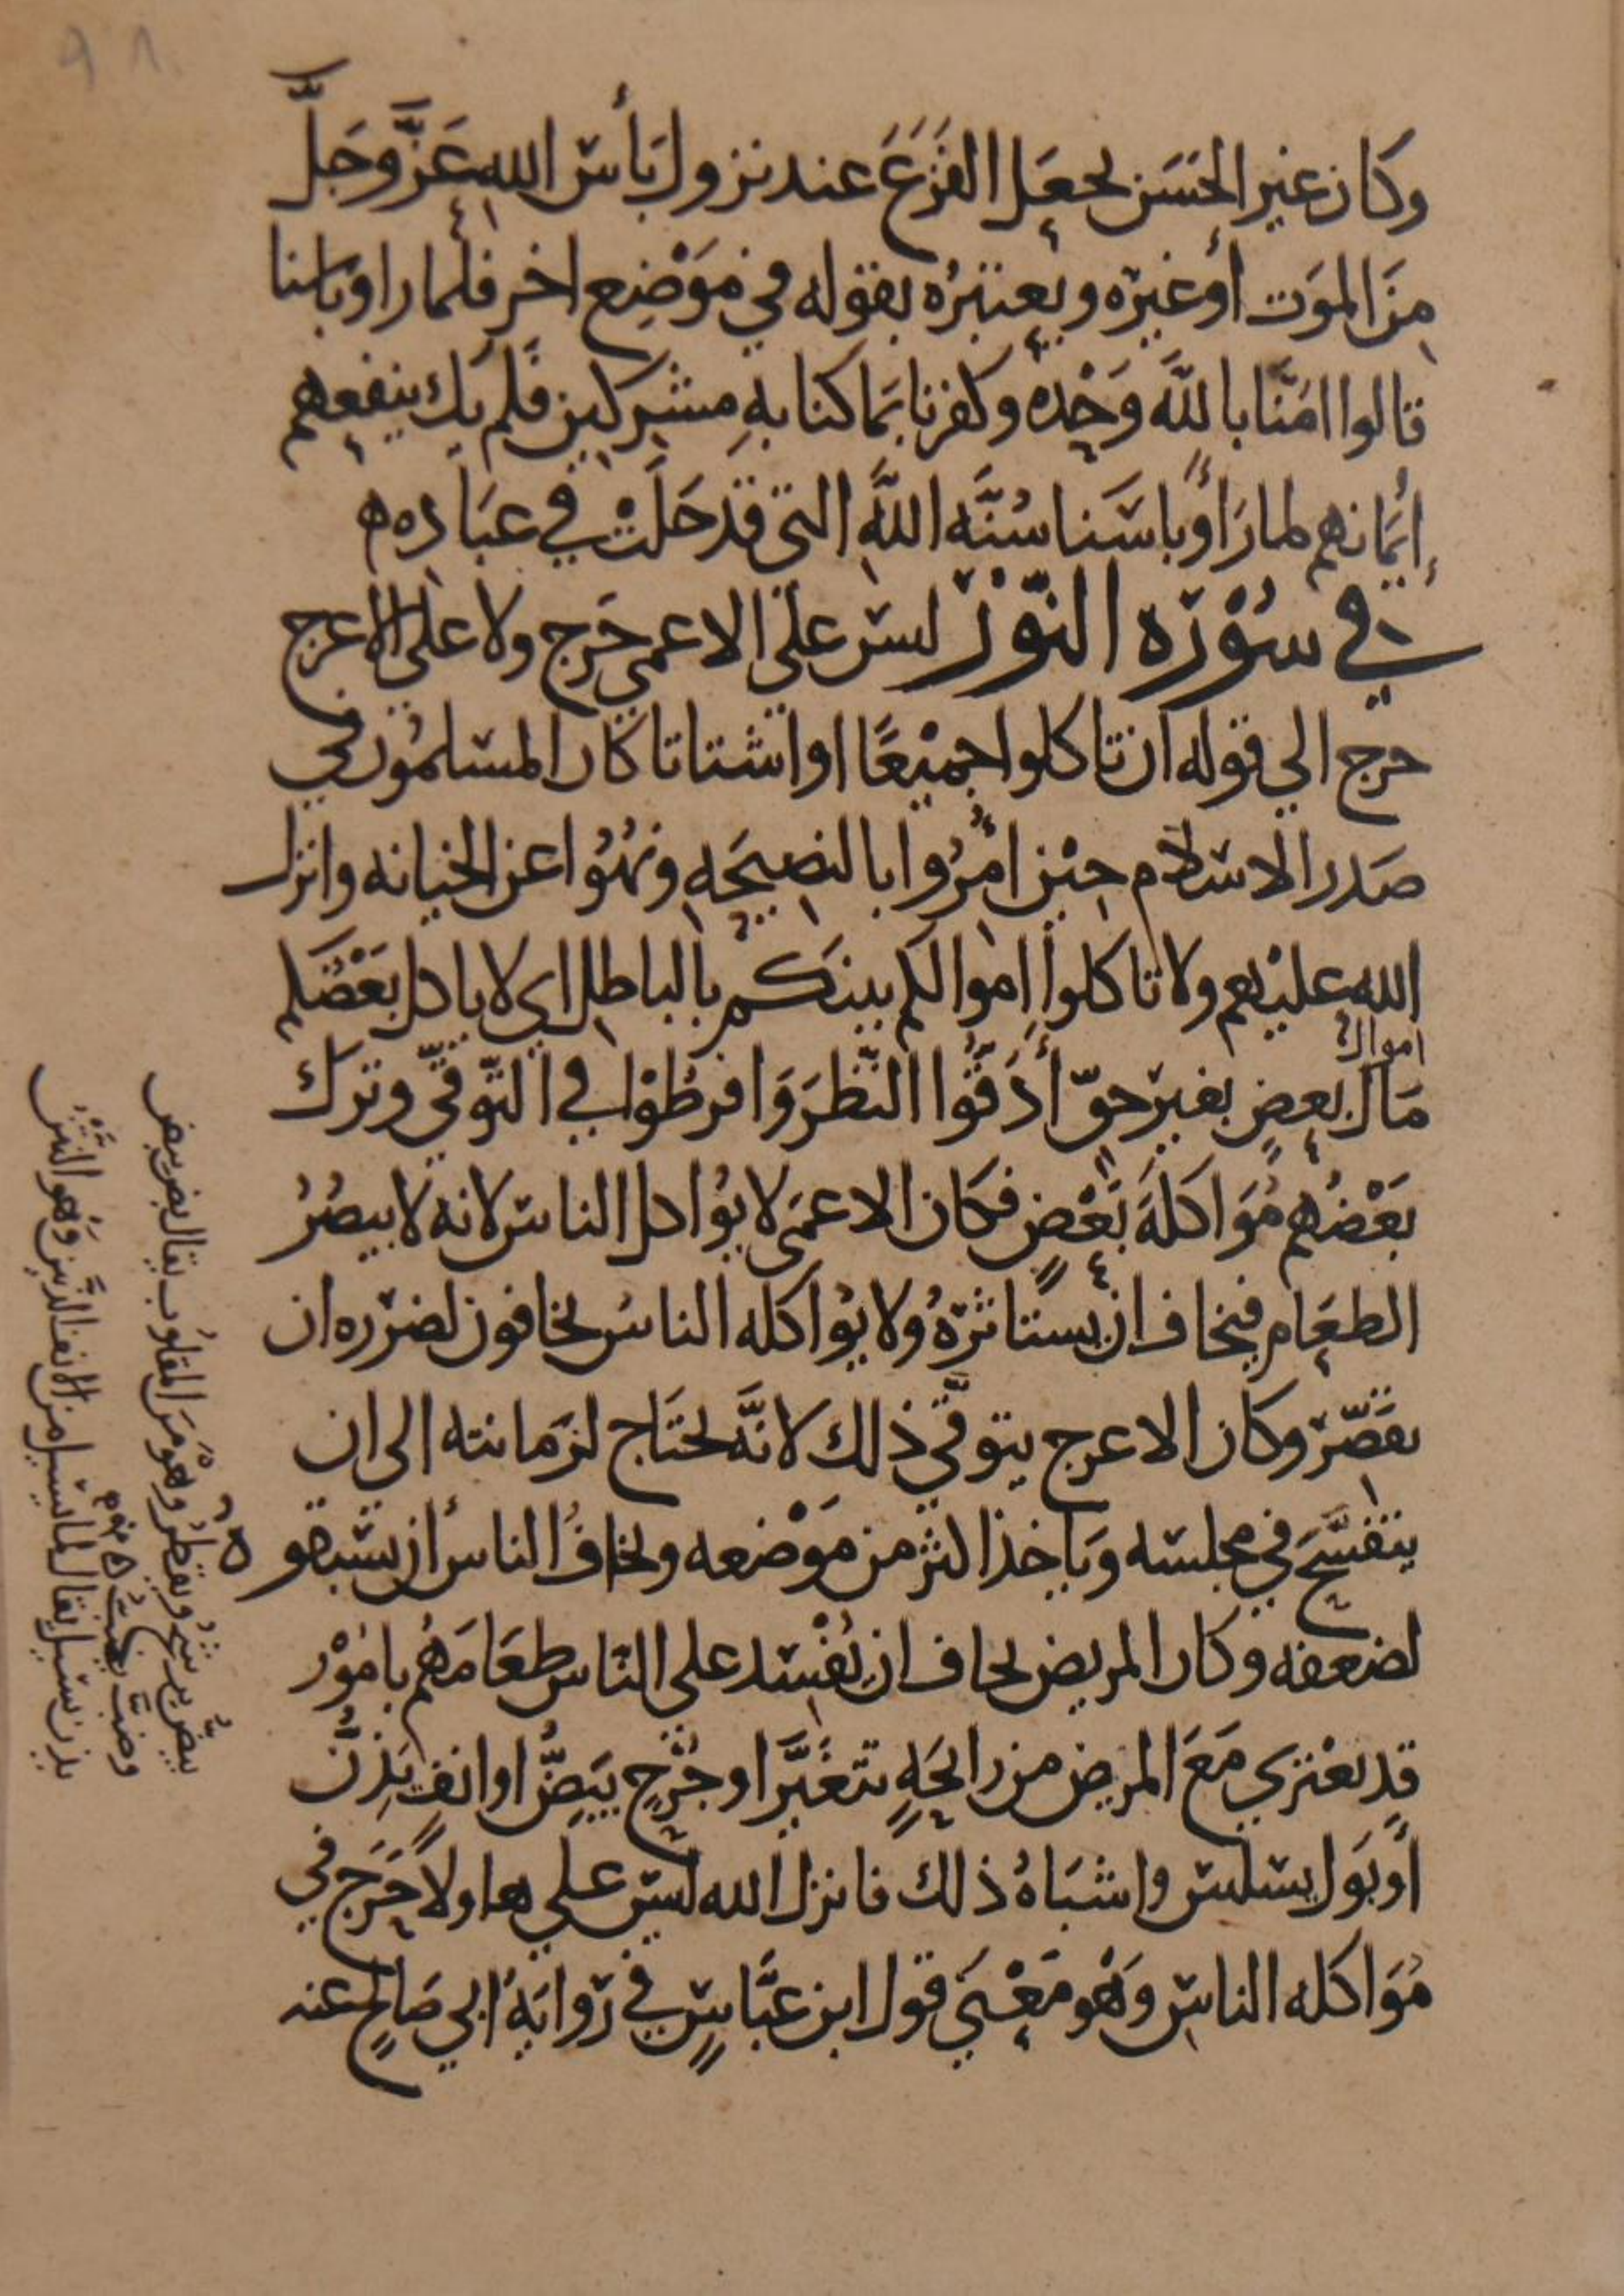 ٩٨
وكان غير الحَسَن يجعَل الفَزَعَ عند نزول بَأس الله عَزَّ وجَلَّ
مِنَ الموَت أو غيره ويعتبرُه بقوله في مَوْضِع اخر فلما راوا باسنا
قالوا امَنَّا باللَّه وَحْده وكفرنا بَما كنا بهِ مشركين فلم يك ينفعهم
إيمَانهم لما رَأوا باسَنا سُنَّه اللَّه التى قد خلَتْ في عبَاده ه
في سُوْرَه النّوْر ليس على الاعمى حَرج ولا على الاعرج
حرج الي قوله ان تاكلوا جميْعًا او اشتاتا كان المسلمُون في
صَدر الاسلام حيْن امُرُوا بالنصِيحَه ونُهُوا عن الخيانه وانزل
الله عليْهم ولا تاكلوا اموالكم بينكم بالباطل اي لا ياكل بَعْضكم
اموال
مَال بعضٍ بغير حقّ أدَقُّوا النّظرَ وَافرطُوْا في التّوقّي وترك
بَعْضُهم مُوَاكلَهَ بَعْضٍ فكان الاعمَى لا يوُاكل الناس لانه لا يبصُرُ
الطعَام فيخاف ان يستاثرَهُ ولا يوُاكله الناسُ يخافون لضرره ان
يقَصّر وكان الاعرج يتوقّي ذلك لانَّه يحتَاج لزمانته الى ان
يتفسَّحَ في مجلسه وَياخذ اكثر من مَوْضعه ويخافُ الناس أن يسبقوه
لضعفه وكان المريض يخاف ان يُفْسد على الناس طعَامَهُم بامُوْر
قد تعْتري مَعَ المريض من رايحَهٍ تتغَيَّر او جُرْحٍ يَبِضُّ او انفٍ يَذِنّ
أو بَول يسلس واشبَاهُ ذلك فانزل الله ليس على هاولا حَرَج في
مُوَاكله الناس وَهُو مَعْنَى قول ابن عبَّاسٍ في رَوايَهِ ابي صَالحٍ عنه
يبضّ يرشحُ ويقطرُ وهو مَن المقلوُب يقال بض يبض
وضبّ يضبّ
يذن يسيل يقال لما يسيل من الانف الذَّنِين وَهُو